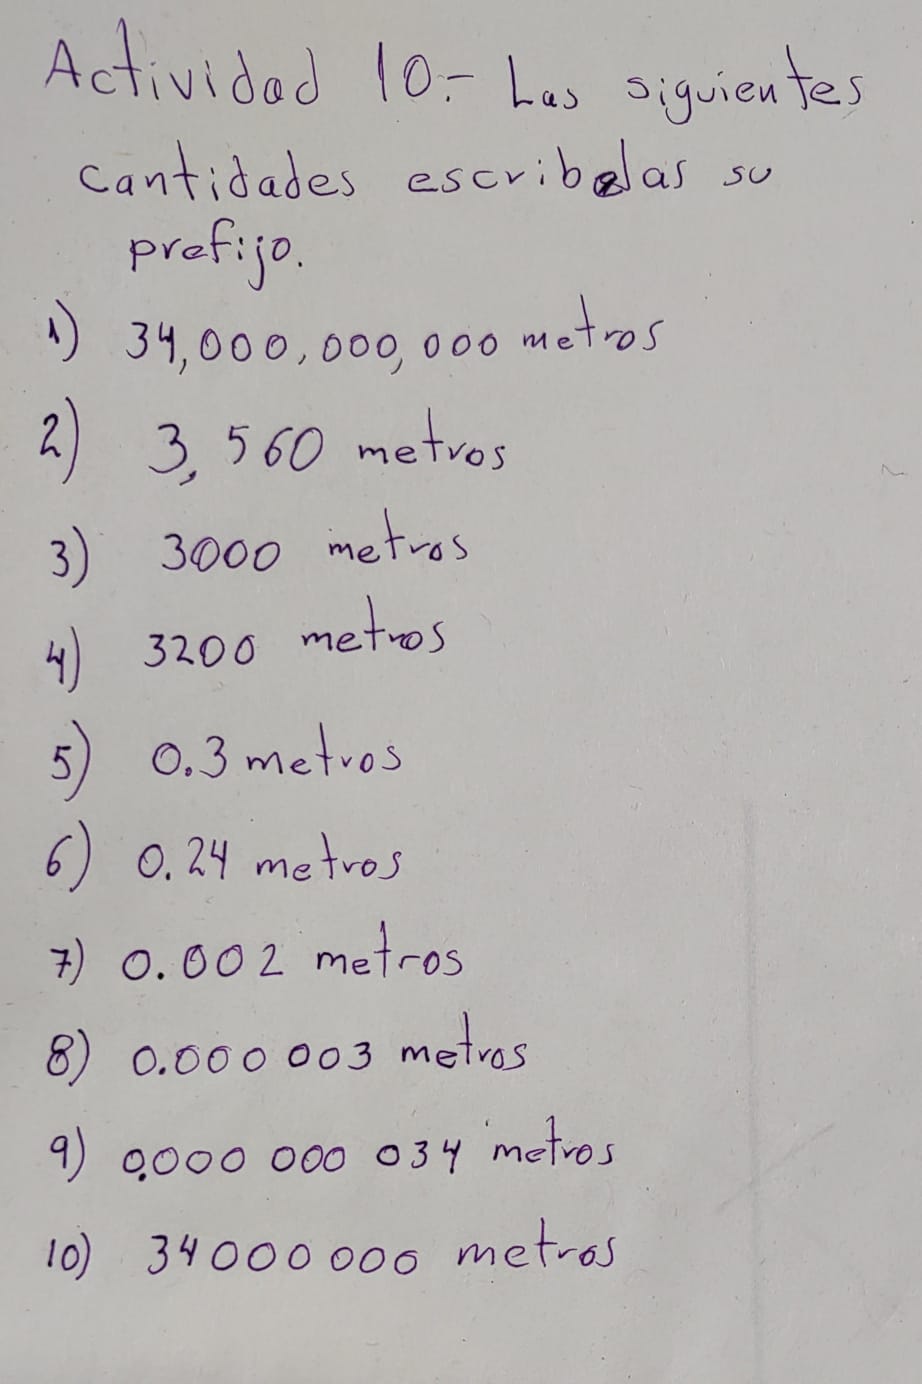 Actividad 10.- Las siguientes
cantidades escribelas su
prefijo.
1) 34,000,000,000 metros
2) 3,560 metros
3) 3000 metros
4) 3200 metros
5) 0.3 metros
6) 0.24 metros
7) 0.002 metros
8) 0.000 003 metros
9) 0.000 000 034 metros
10) 34000000 metros